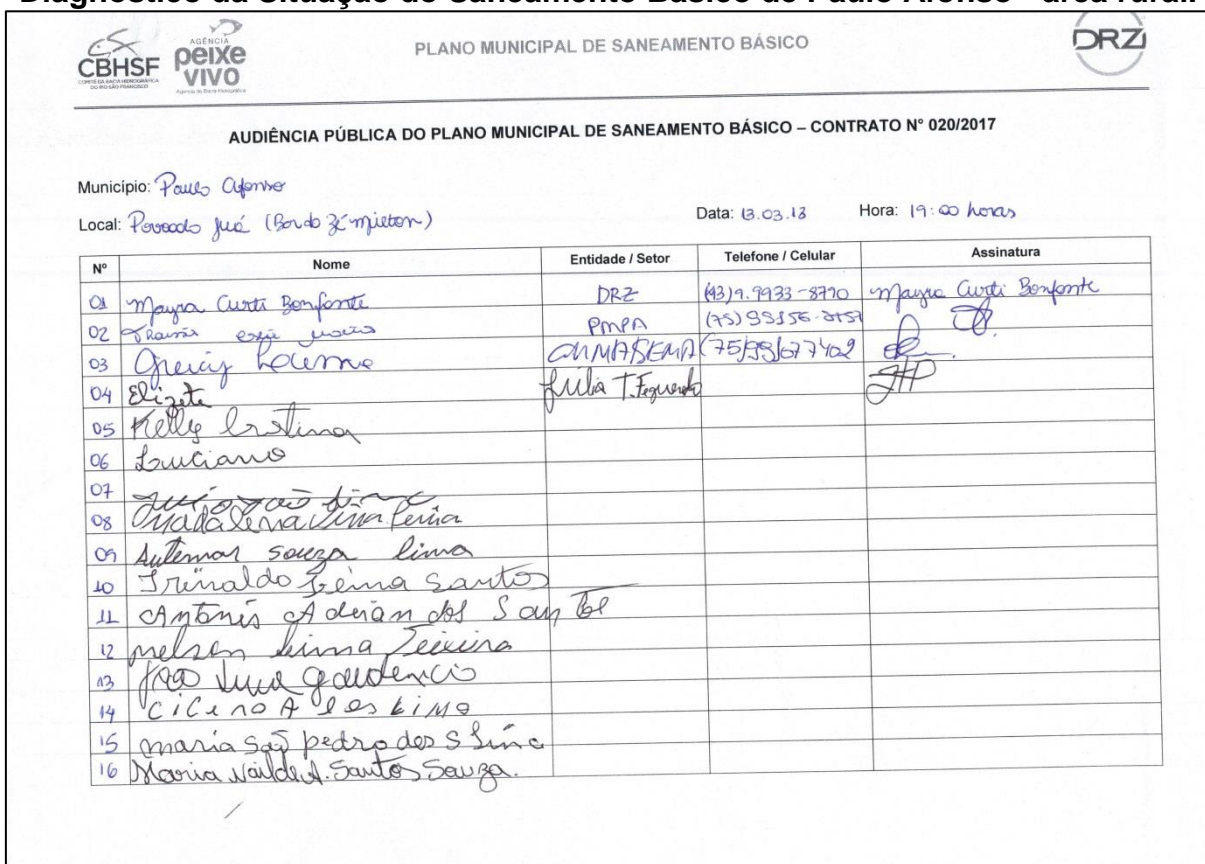 Diagnóstico da Situação do Saneamento Básico de Paulo Afonso - área rural.
CBHSF
COMITÊ DA BACIA HIDROGRÁFICA
DO RIO SÃO FRANCISCO
AGÊNCIA
peixe
VIVO
Agência de Bacia Hidrográfica
PLANO MUNICIPAL DE SANEAMENTO BÁSICO
DRZ
AUDIÊNCIA PÚBLICA DO PLANO MUNICIPAL DE SANEAMENTO BÁSICO – CONTRATO N° 020/2017
Município: Paulo Afonso
Local: Povoado Juá (Bar do Zé Milton)
Data: 13.03.18 Hora: 19:00 horas
Nº Nome Entidade / Setor Telefone / Celular Assinatura
01 Mayra Curti Bonfante DRZ (43) 9.9933-8790 Mayra Curti Bonfante
02 PMPA (75)
03 (75)
04 Elizete Júlia T. Figueredo
05 Kelly Cristina
06 Luciano
07
08 Madalena Lima
09 Autemar souza lima
10 Irinaldo Lima Santos
11 Antonio dos Santos
12 nelson Lima Teixeira
13 João Lima gaudencio
14 Cicero A Lima
15 maria São pedro dos S Lima
16 Maria Nailde A. Santos Souza.